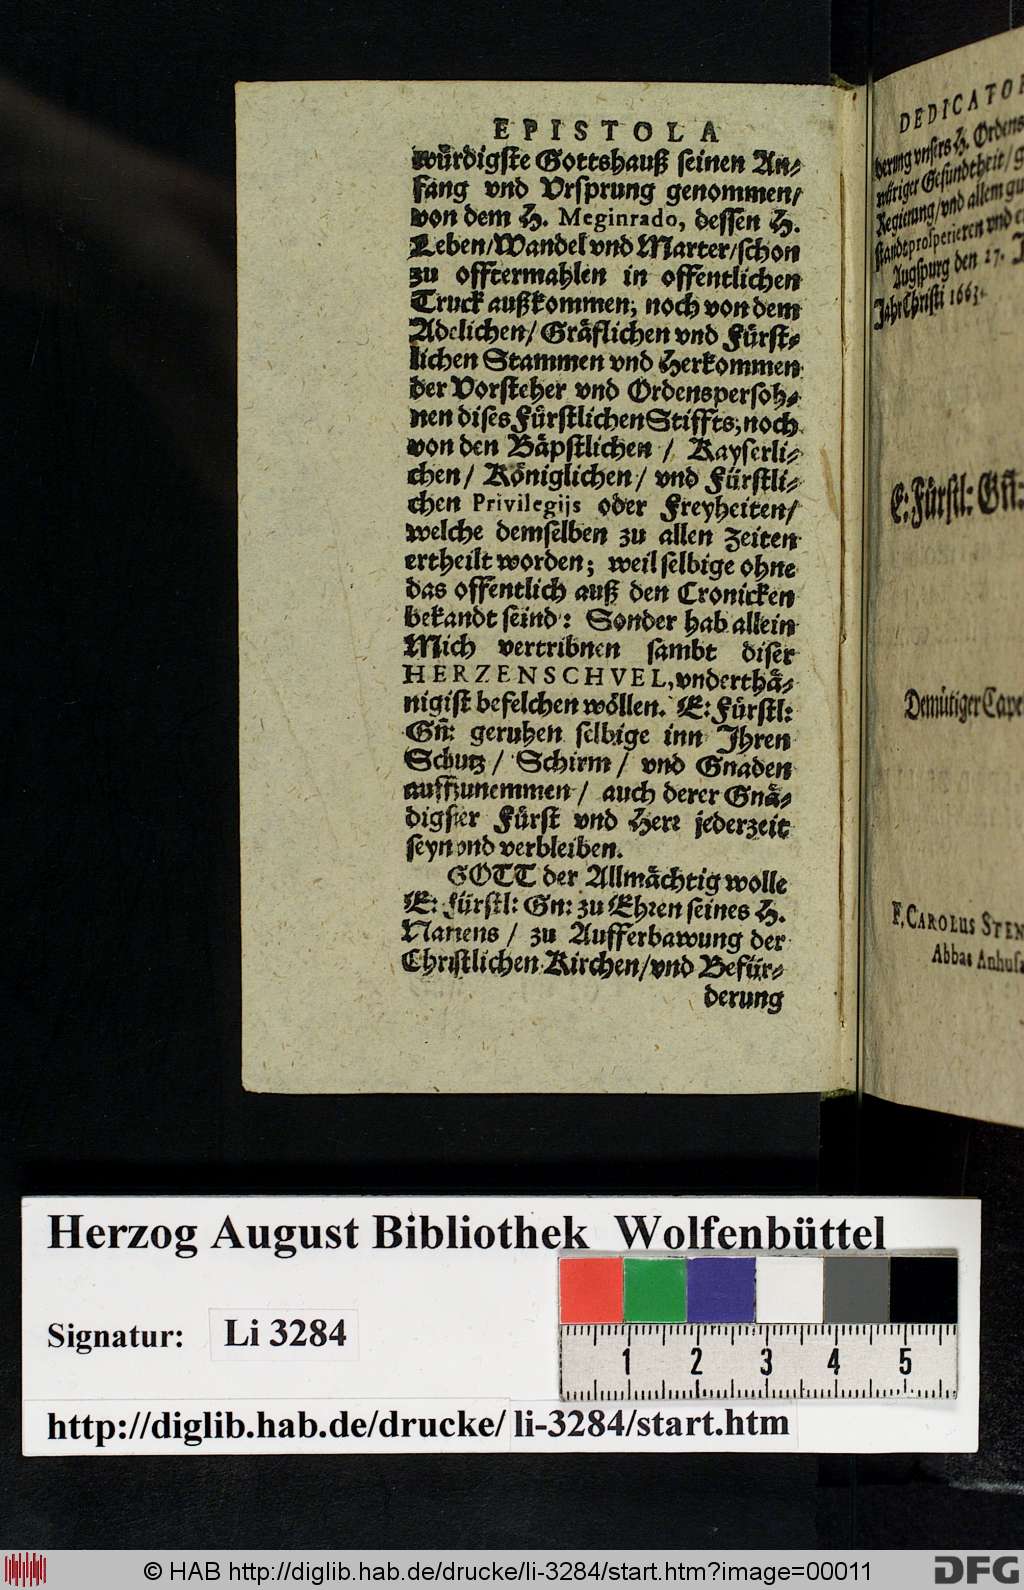 EPISTOLA
würdigste Gottshauß seinen An-
fang vnd Vrsprung genommen/
von dem H. Meginrado, dessen H.
Leben/Wandel vnd Marter/schon
zu offtermahlen in offentlichen
Truck außkommen; noch von dem
Adelichen/ Gräflichen vnd Fürst-
lichen Stammen vnd Herkommen
der Vorsteher vnd Ordenspersoh-
nen dises Fürstlichen Stiffts; noch
von den Bäpstlichen / Kayserli-
chen/ Königlichen/ vnd Fürstli-
chen Privilegijs oder Freyheiten/
welche demselben zu allen Zeiten
ertheilt worden; weil selbige ohne
das offentlich auß den Cronicken
bekandt seind: Sonder hab allein
Mich vertribnen sambt diser
HERZENSCHVEL, vnderthä-
nigist befelchen wöllen. E: Fürstl:
Gn̄: geruhen selbige inn Ihren
Schutz/ Schirm/ vnd Gnaden
auffzunemmen/ auch derer Gnä-
digster Fürst vnd Herr jederzeit
seyn vnd verbleiben.
GOTT der Allmächtig wolle
E: Fürstl: Gn: zu Ehren seines H.
Namens/ zu Aufferbawung der
Christlichen Kirchen/vnd Befür-
derung
DEDICATOR
derung vnsers H. Ordens
würiger Gesundtheit/
Regierung/vnd allem
stands prosperieren vnd
Augspurg den 27.
Jahr Christi 1663.
E: Fürstl: Gn:
Demütiger
F. CAROLUS STEN
Abbas Anhus
Herzog August Bibliothek Wolfenbüttel
Signatur: Li 3284
1 2 3 4 5
http://diglib.hab.de/drucke/ li-3284/start.htm
© HAB http://diglib.hab.de/drucke/li-3284/start.htm?image=00011
DFG